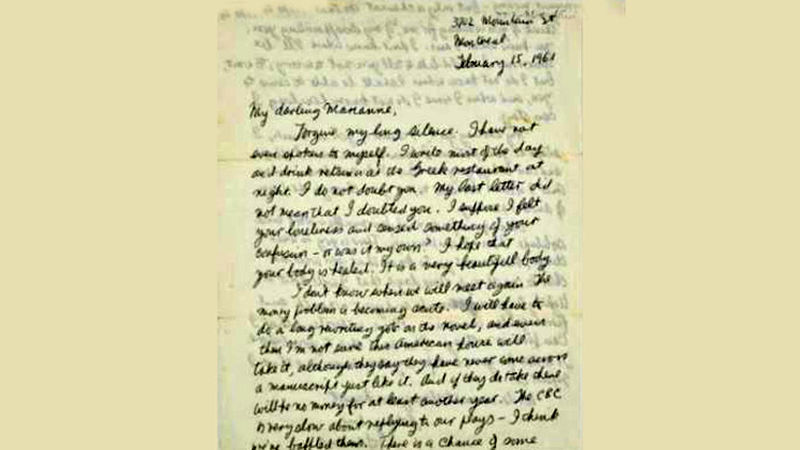 Mountain St
Montreal
February 15, 1961
My darling Marianne,
Forgive my long silence. I have not
even spoken to myself. I write most of the day
and drink retsina at the Greek restaurant at
night. I do not doubt you. My last letter did
not mean that I doubted you. I suppose I felt
your loneliness and sensed something of your
confusion - or was it my own? I hope that
your body is healed. It is a very beautiful body.
I don't know when we will meet again. The
money problem is becoming acute. I will have to
do a long rewriting job on the novel, and even
then I'm not sure this American house will
take it, although they say they have never come across
a manuscript just like it. And if they do take there
will be no money for at least another year. The CBC
is very slow about replying to our plays - I think
we've baffled them. There is a chance of some